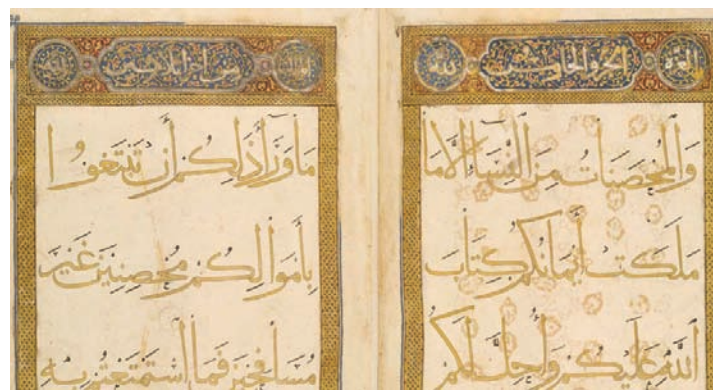 العزة الجزو الخامس لله
وَالْمُحْصَنَاتُ مِنَ النِّسَاءِ إِلَّا مَا
مَلَكَتْ أَيْمَانُكُمْ كِتَابَ
اللَّهِ عَلَيْكُمْ وَأُحِلَّ لَكُمْ
من اجزا ثلاثين
مَا وَرَاءَ ذَلِكُمْ أَنْ تَبْتَغُوا
بِأَمْوَالِكُمْ مُحْصِنِينَ غَيْرَ
مُسَافِحِينَ فَمَا اسْتَمْتَعْتُمْ بِهِ